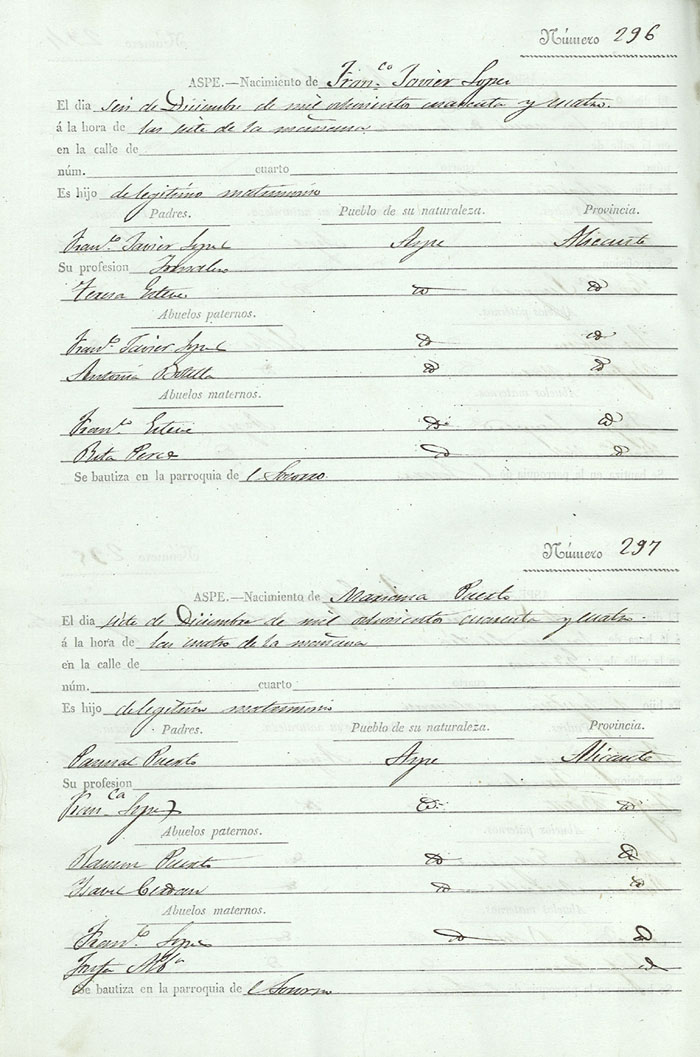 Número 296
ASPE.—Nacimiento de Fran.co Javier Lopez
El dia seis de Diciembre de mil ochocientos cuarenta y cuatro.
á la hora de las siete de la mañana
en la calle de
núm. cuarto
Es hijo de legitimo matrimonio
Padres. Pueblo de su naturaleza. Provincia.
Fran.co Javier Lopez Aspe Alicante
Su profesion Jornalero
Teresa Esteve id id
Abuelos paternos.
Fran.co Javier Lopez id id
Antonia Botella id id
Abuelos maternos.
Fran.co Esteve id id
Rita Perez id id
Se bautiza en la parroquia de el Socorro.
Número 297
ASPE.—Nacimiento de Mariana Puerto
El dia siete de Diciembre de mil ochocientos cuarenta y cuatro.
á la hora de las cuatro de la mañana
en la calle de
núm. cuarto
Es hijo de legitimo matrimonio
Padres. Pueblo de su naturaleza. Provincia.
Pascual Puerto Aspe Alicante
Su profesion
Fran.ca Lopez id id
Abuelos paternos.
Ramon Puerto id id
Isabel Cerdan id id
Abuelos maternos.
Fran.co Lopez id id
Josefa id
Se bautiza en la parroquia de el Socorro